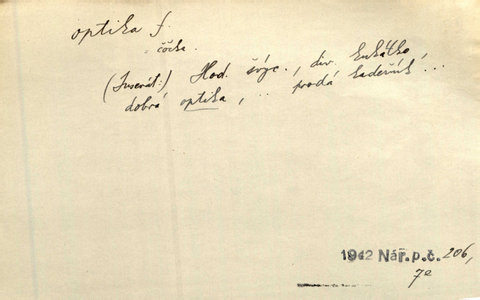 optika f.
= čočka.
(Inserát:) Hod. švýc., div. kukátko,
dobrá optika, .. prodá kadeřník ...
1942 Nár.p.č. 206,
7a